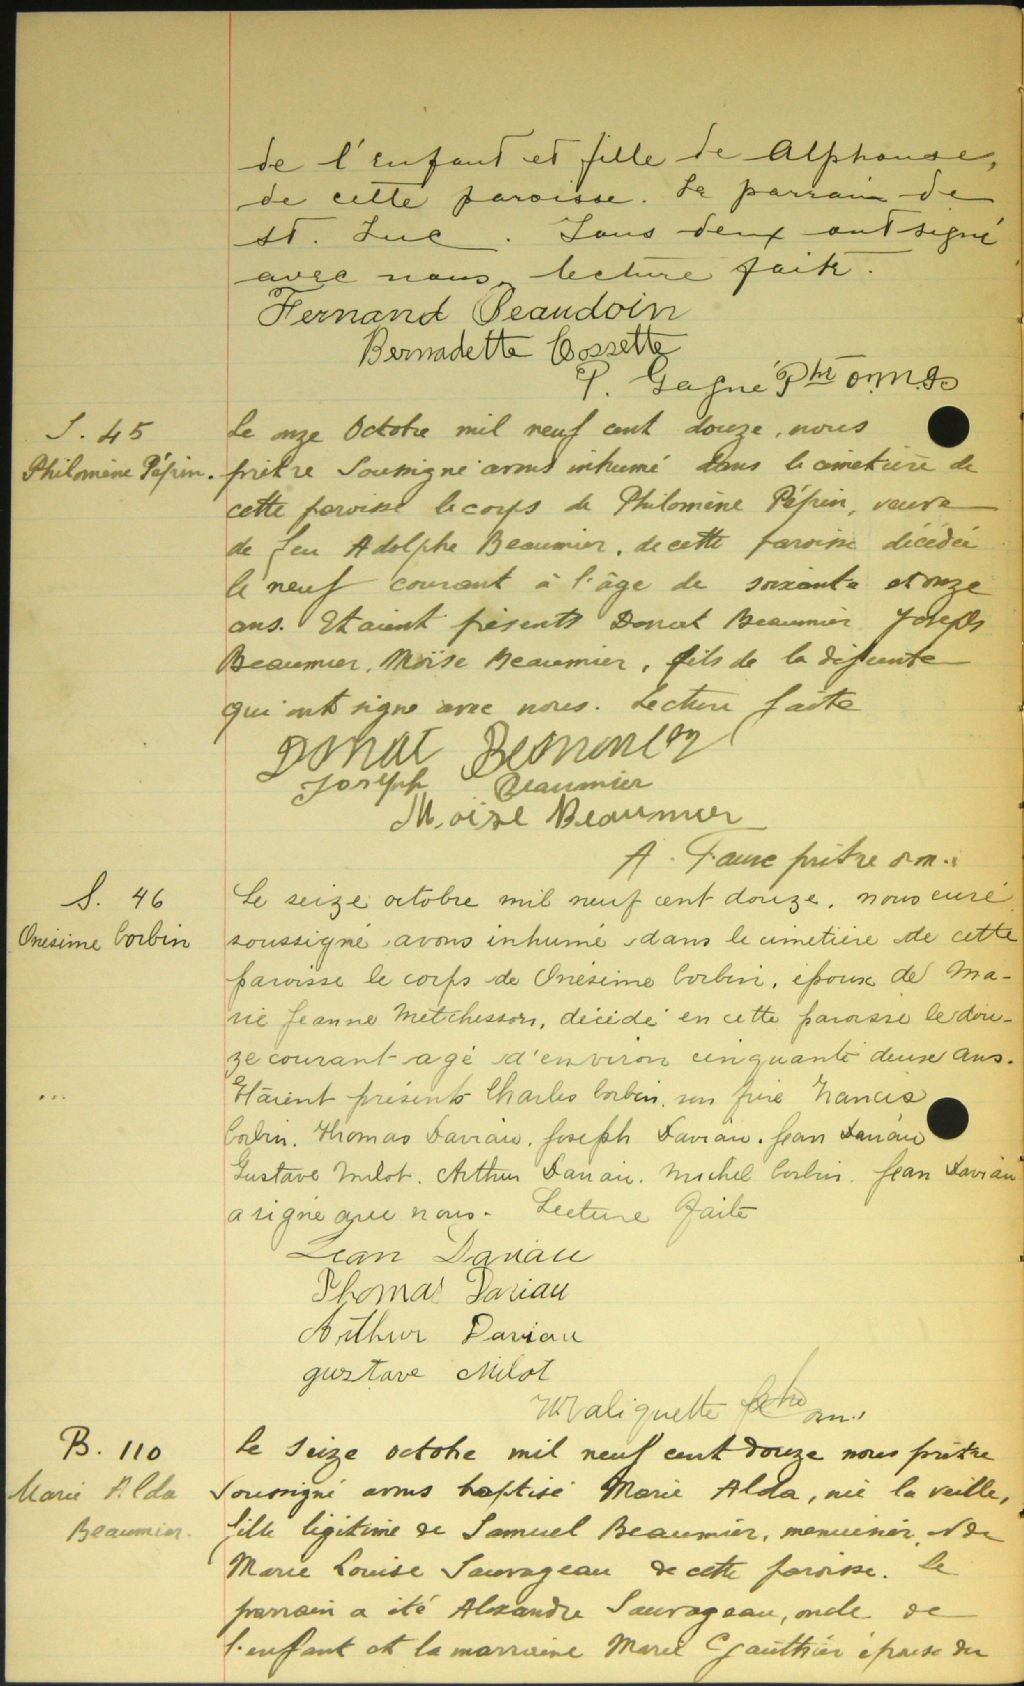 de l'enfant et fille de Alphonse,
de cette paroisse. Le parrain de
St. Luc. Tous deux ont signé
avec nous, lecture faite.
Fernand Beaudoin
Bernadette Cossette
P. Gagné Ptre o.m.i.
S. 45
Philomène Pépin.
Le onze Octobre mil neuf cent douze, nous
prêtre soussigné avons inhumé dans le cimetière de
cette paroisse le corps de Philomène Pépin, veuve
de feu Adolphe Beaumier, de cette paroisse décédée
le neuf courant à l'âge de soixante et onze
ans. Etaient présents Donat Beaumier Joseph
Beaumier, Moïse Beaumier, fils de la défunte
qui ont signé avec nous. Lecture faite
Donat
Joseph Beaumier
Moïse Beaumier
A. Faure prêtre o.m.i.
S. 46
Onésime Corbin
Le seize octobre mil neuf cent douze, nous curé
soussigné avons inhumé dans le cimetière de cette
paroisse le corps de Onésime Corbin, époux de Ma-
rie Jeanne Metchesson, décédé en cette paroisse le dou-
ze courant agé d'environ cinquante deux ans.
Etaient présents Charles Corbin, son frère Francis
Corbin. Thomas Daviau, Joseph Daviau. Jean Daviau
Gustave Milot. Arthur Daviau. Michel Corbin. Jean Daviau
a signé avec nous. Lecture faite
Jean Daviau
Thomas Daviau
Arthur Daviau
gustave Milot
Valiquette ptre o.m.i.
B. 110
Marie Alda
Beaumier.
Le seize octobre mil neuf cent douze nous prêtre
soussigné avons baptisé Marie Alda, née la veille,
fille légitime de Samuel Beaumier, menuisier, et de
Marie Louise Sauvageau de cette paroisse. Le
parrain a été Alexandre Sauvageau, oncle de
l'enfant et la marraine Marie Gauthier épouse du